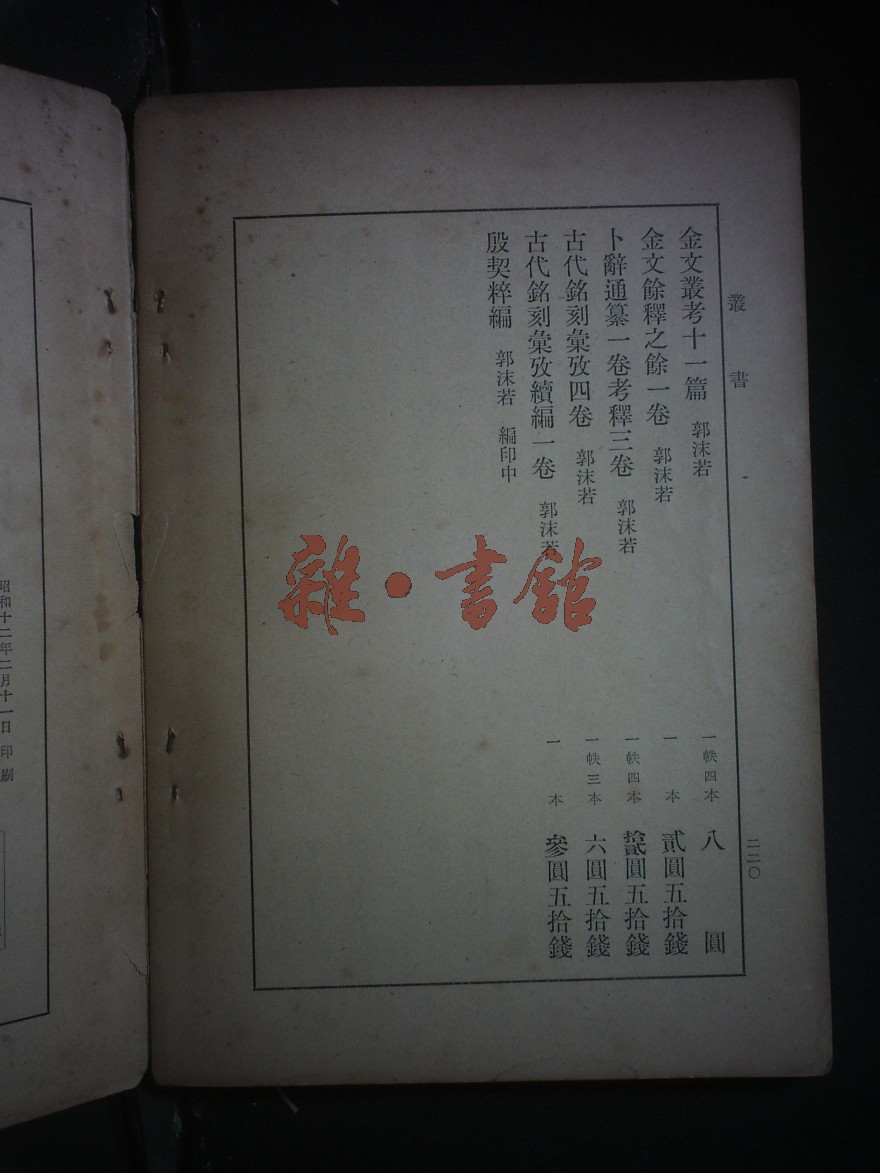 叢書
金文叢考十一篇 郭沫若 一帙四本 八圓
金文餘釋之餘一卷 郭沫若 一本 貳圓五拾錢
卜辭通纂一卷考釋三卷 郭沫若 一帙四本 拾貳圓五拾錢
古代銘刻彙攷四卷 郭沫若 一帙三本 六圓五拾錢
古代銘刻彙攷續編一卷 郭沫若 一本 參圓五拾錢
殷契粹編 郭沫若 編印中
二二〇
昭和十二年二月十一日印刷
雜·書館